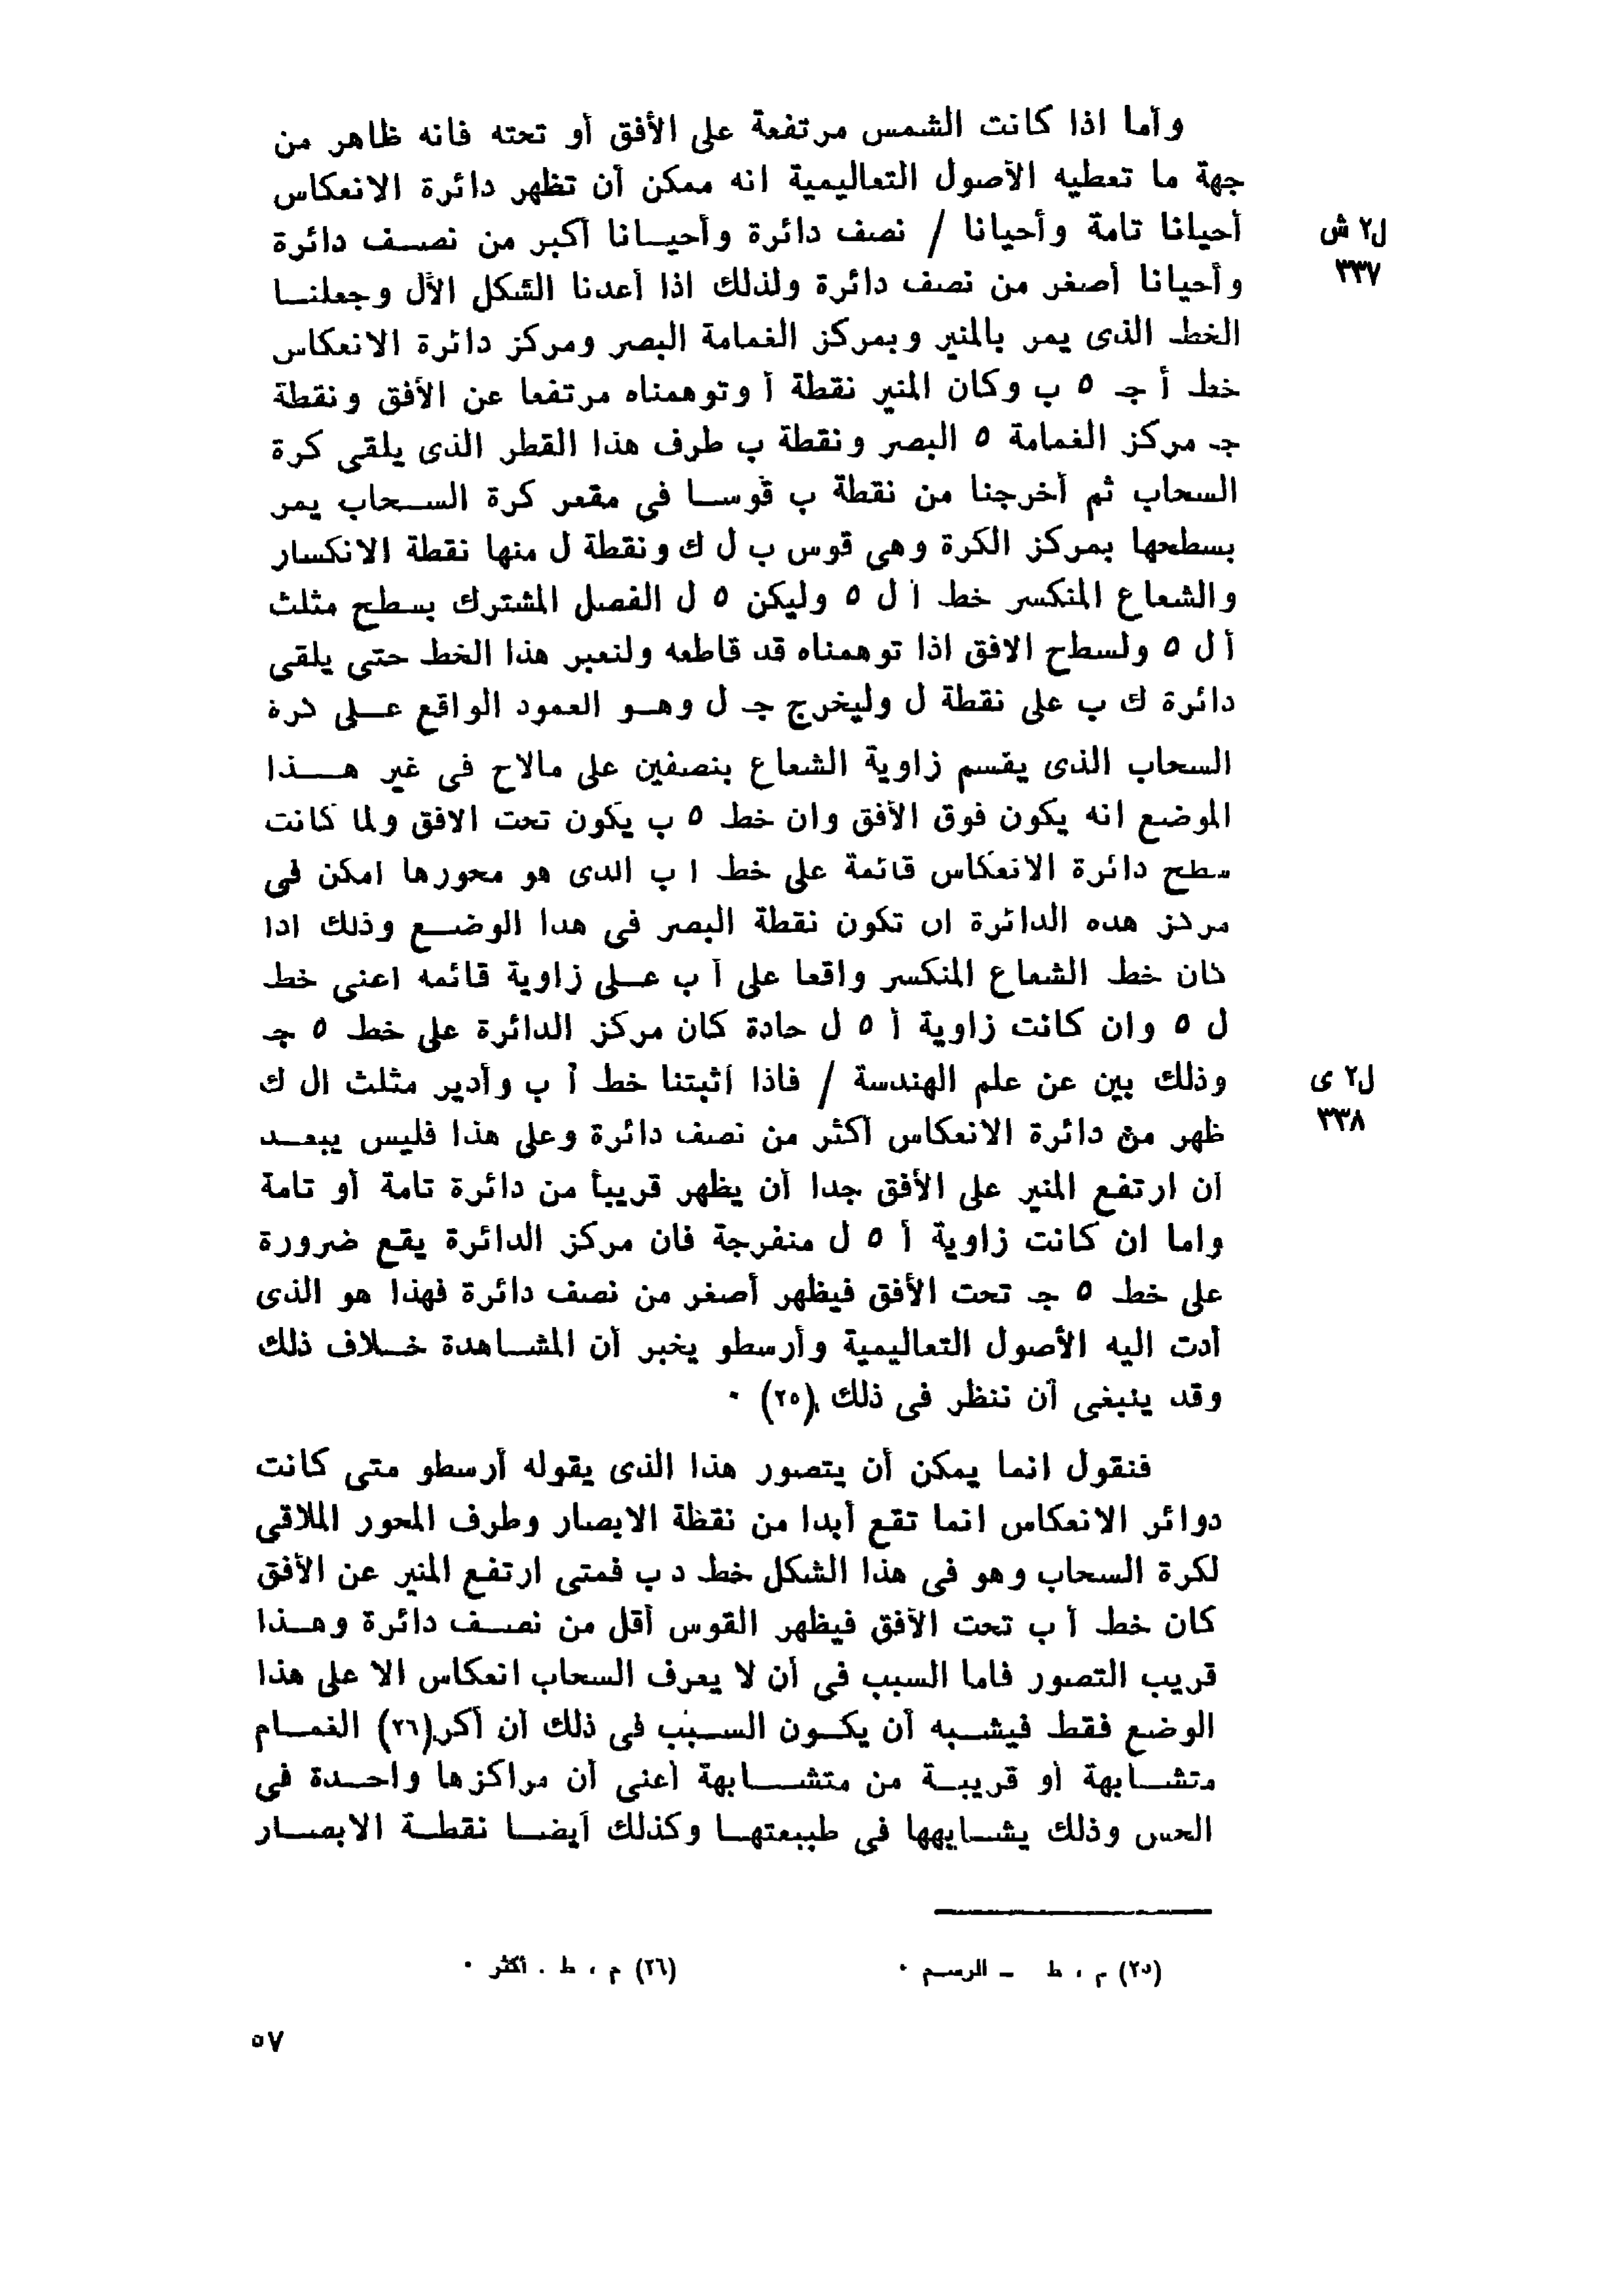 وأما اذا كانت الشمس مرتفعة على الأفق أو تحته فانه ظاهر من
جهة ما تعطيه الأصول التعاليمية انه ممكن أن تظهر دائرة الانعكاس
أحيانا تامة وأحيانا / نصف دائرة وأحيــانا أكبر من نصــف دائرة
ل٢ ش
٣٣٧
وأحيانا أصغر من نصف دائرة ولذلك اذا أعدنا الشكل الأل وجعلنــا
الخط الذى يمر بالمنير وبمركز الغمامة البصر ومركز دائرة الانعكاس
خط أ جـ ٥ ب وكان المنير نقطة أ وتوهمناه مرتفعا عن الأفق ونقطة
جـ مركز الغمامة ٥ البصر ونقطة ب طرف هذا القطر الذى يلقى كرة
السحاب ثم أخرجنا من نقطة ب قوســا فى مقعر كرة الســحاب يمر
بسطحها بمركز الكرة وهى قوس ب ل ك ونقطة ل منها نقطة الانكسار
والشعاع المنكسر خط أ ل ٥ وليكن ٥ ل الفصل المشترك بسطح مثلث
أ ل ٥ ولسطح الافق اذا توهمناه قد قاطعه ولنعبر هذا الخط حتى يلقى
دائرة ك ب على نقطة ل وليخرج جـ ل وهــو العمود الواقع عــلى كرة
السحاب الذى يقسم زاوية الشعاع بنصفين على مالاح فى غير هــذا
الموضع انه يكون فوق الأفق وان خط ٥ ب يكون تحت الافق ولما كانت
سطح دائرة الانعكاس قائمة على خط ا ب الدى هو محورها امكن فى
مركز هده الدائرة ان تكون نقطة البصر فى هدا الوضــع وذلك ادا
كان خط الشعاع المنكسر واقعا على أ ب عــلى زاوية قائمه اعنى خط
ل ٥ وان كانت زاوية أ ٥ ل حادة كان مركز الدائرة على خط ٥ جـ
وذلك بين عن علم الهندسة / فاذا أثبتنا خط أ ب وأدير مثلث ال ك
ل٢ ى
٣٣٨
ظهر من دائرة الانعكاس أكثر من نصف دائرة وعلى هذا فليس يبعــد
أن ارتفع المنير على الأفق جدا أن يظهر قريبأ من دائرة تامة أو تامة
واما ان كانت زاوية أ ٥ ل منفرجة فان مركز الدائرة يقع ضرورة
على خط ٥ جـ تحت الأفق فيظهر أصغر من نصف دائرة فهذا هو الذى
أدت اليه الأصول التعاليمية وأرسطو يخبر أن المشــاهدة خــلاف ذلك
وقد ينبغى أن ننظر فى ذلك (٢٥) ٠
فنقول انما يمكن أن يتصور هذا الذى يقوله أرسطو متى كانت
دوائر الانعكاس انما تقع أبدا من نقظة الابصار وطرف المحور الملاقى
لكرة السحاب وهو فى هذا الشكل خط د ب فمتى ارتفع المنير عن الأفق
كان خط أ ب تحت الأفق فيظهر القوس أقل من نصــف دائرة وهــذا
قريب التصور فاما السبب فى أن لا يعرف السحاب انعكاس الا على هذا
الوضع فقط فيشــبه أن يكــون الســبب فى ذلك أن أكر(٢٦) الغمــام
متشــابهة أو قريبــة من متشــابهة أعنى أن مراكزها واحــدة فى
الحس وذلك يشــابهها فى طبيعتهــا وكذلك أيضــا نقطــة الابصــار
(٢٥) م ، ط – الرسـم ٠
(٢٦) م ، ط . أكثر ٠
٥٧